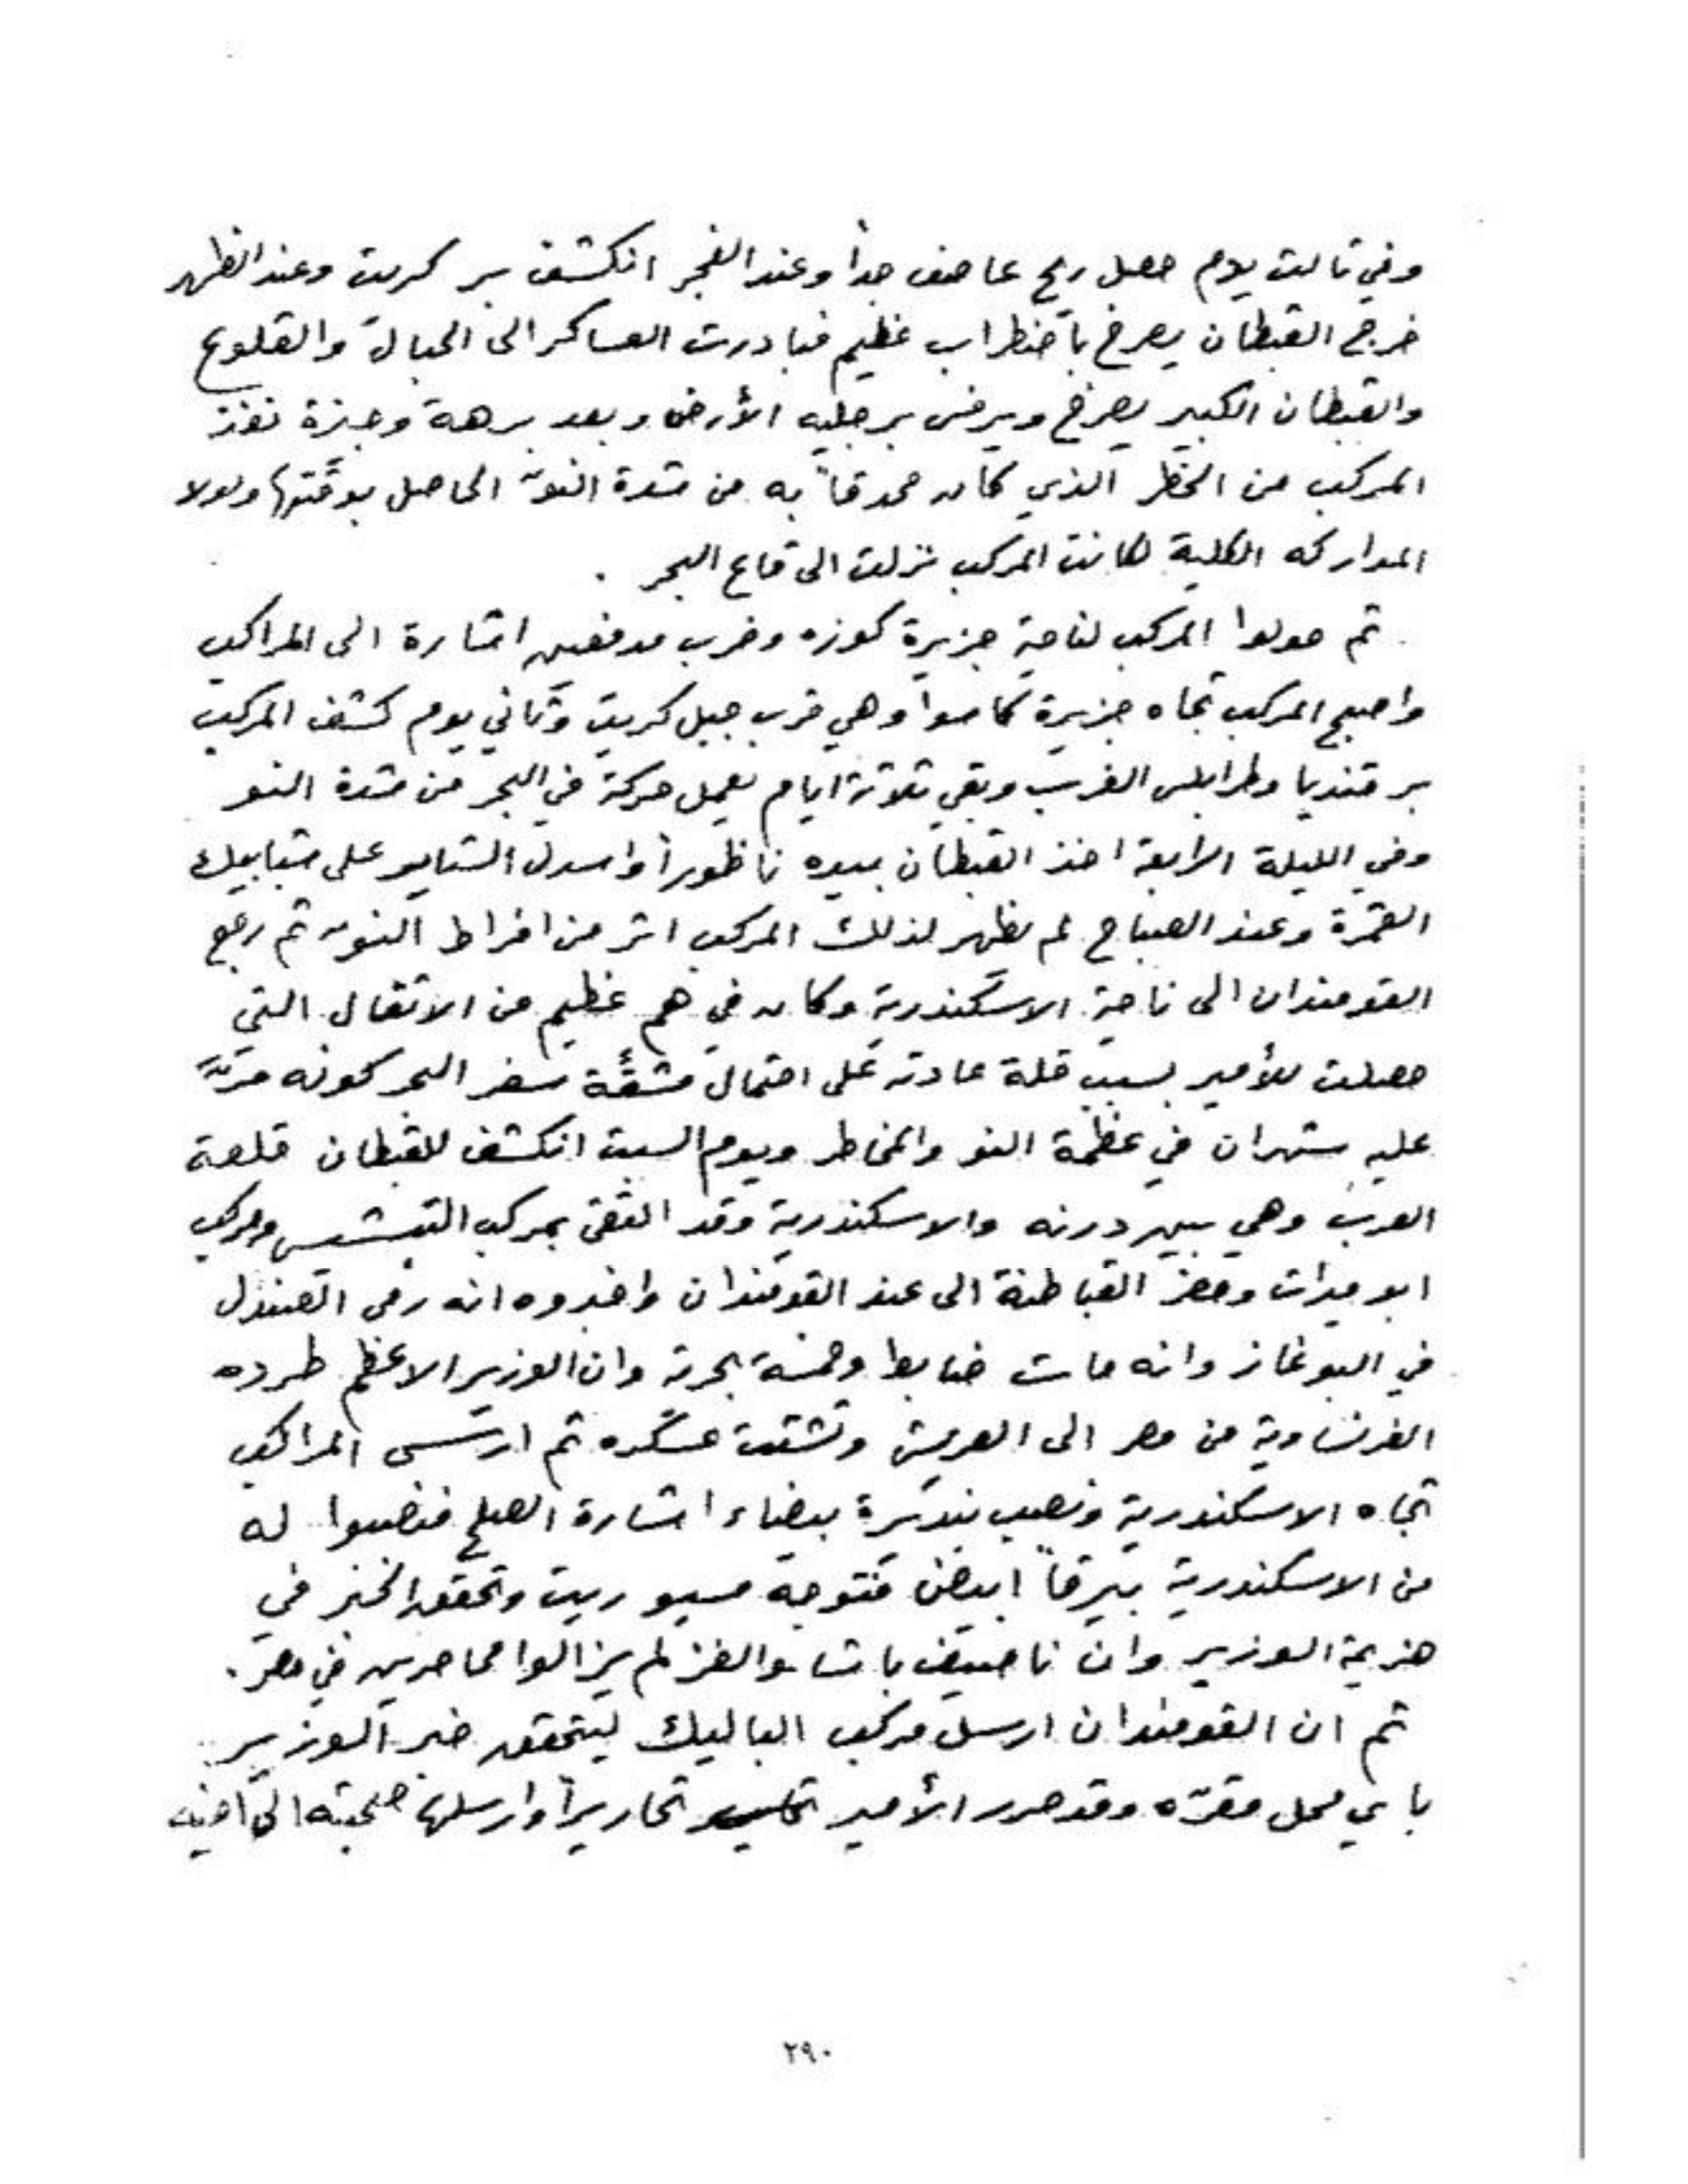 وفي ثالث يوم حصل ريح عاصف جداً وعند الفجر انكشف بر كريت وعند الظهر
خرج القبطان يصرخ باضطراب عظيم فبادرت العساكر الى الحبال والقلوع
والقبطان الكبير يصرخ ويرفس برجليه الأرض وبعد برهة وجيزة نفذ
المركب من الخطر الذي كان محدقاً به من شدة النوّ الحاصل بوقتها ولولا
المداركه الكلية لكانت المركب نزلت الى قاع البحر .
ثم حولوا المركب لناحية جزيرة كوزه وضرب مدفعين اشارة الى المراكب
واصبح المركب تجاه جزيرة كاسوا وهي قرب جبل كريت وثاني يوم كشف المركب
بر قنديا وطرابلس الغرب وبقي ثلاثة ايام بعمل حركة في البحر من شدة النو
وفي الليلة الرابعة اخذ القبطان بيده ناظوراً واسدل الستاير على شبابيك
القمرة وعند الصباح لم يظهر لذلك المركب اثر من افراط النوّ ثم رجع
القومندان الى ناحية الاسكندرية وكان في هم عظيم من الاثقال التي
حصلت للأمير بسبب قلة عادته على احتمال مشقّة سفر البحر كونه مرّ
عليه شهران في عظمة النو والمخاطر ويوم السبت انكشف للقبطان قلعة
العرب وهي بين درنه والاسكندرية وقد التقى بمركب التبشس ومركب
ابو ميرات وحضر القباطنة الى عند القومندان واخبروه انه رمى الصندل
في البوغاز وانه مات ضابط وخمسة بحرية وان الوزير الاعظم طرده
الفرنساوية من مصر الى العريش وتشتت عسكره ثم ارتسى المراكب
تجاه الاسكندرية ونصب بنديرة بيضاء اشارة الصلح فنصبوا له
من الاسكندرية بيرقاً ابيض فتوجه مسيو ريت وتحقق الخبر في
هزيمة الوزير وان ناصيف باشا والغز لم يزالوا محاصرين في مصر.
ثم ان القومندان ارسل مركب الباليك ليتحقق خبر الوزير
باي محل مقرّه وقد حرر الأمير تحاريراً وارسلها صحبته الى اخيه
٢٩٠